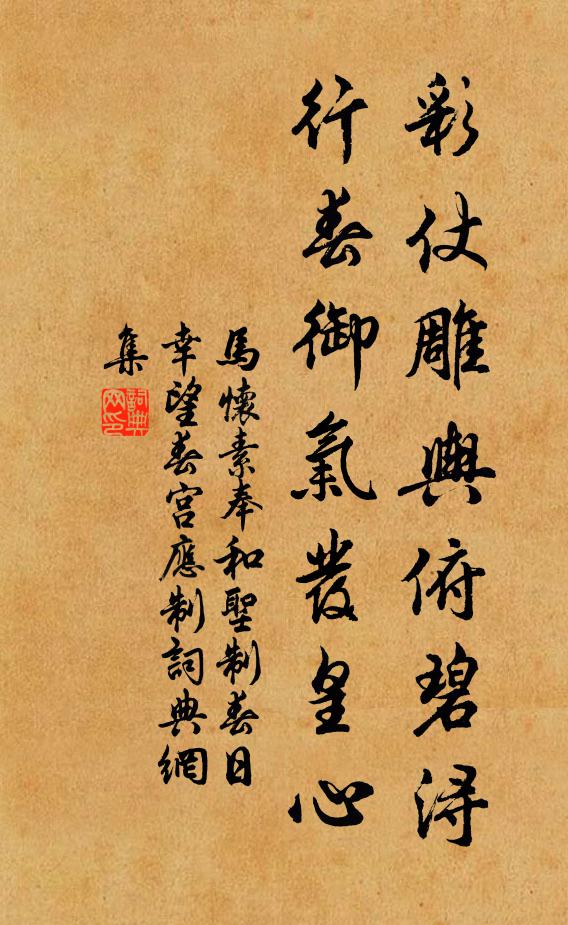 彩仗雕輿俯碧潯
行春御氣發皇心
馬懷素奉和聖制春日
幸望春宮應制詞典網
集
詞典
网印